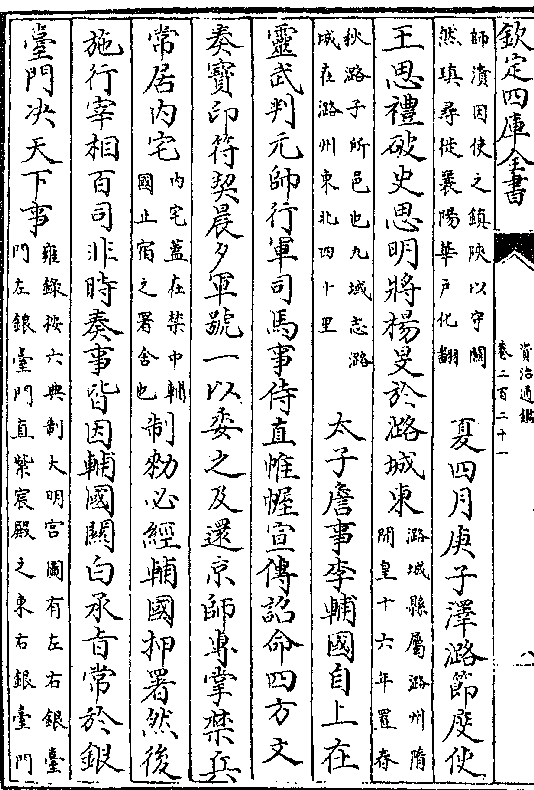 欽定四庫全書
資治通鑑
卷二百二十一
八
師瀆因使之鎮陝以守關
然瑱尋徙襄陽華戶化翻
夏四月庚子澤潞節度使
王思禮破史思明將楊旻於潞城東
潞城縣屬潞州隋
開皇十六年置春
秋潞子所邑也九域志潞
城在潞州東北四十里
太子詹事李輔國自上在
靈武判元帥行軍司馬事侍直帷幄宣傳詔命四方文
奏寶印符契晨夕軍號一以委之及還京師專掌禁兵
常居内宅
内宅蓋在禁中輔
國止宿之署舍也
制勑必經輔國押署然後
施行宰相百司非時奏事皆因輔國關白承旨常於銀
臺門決天下事
雍錄按六典制大明宫圖有左右銀臺
門左銀臺門直紫宸殿之東右銀臺門